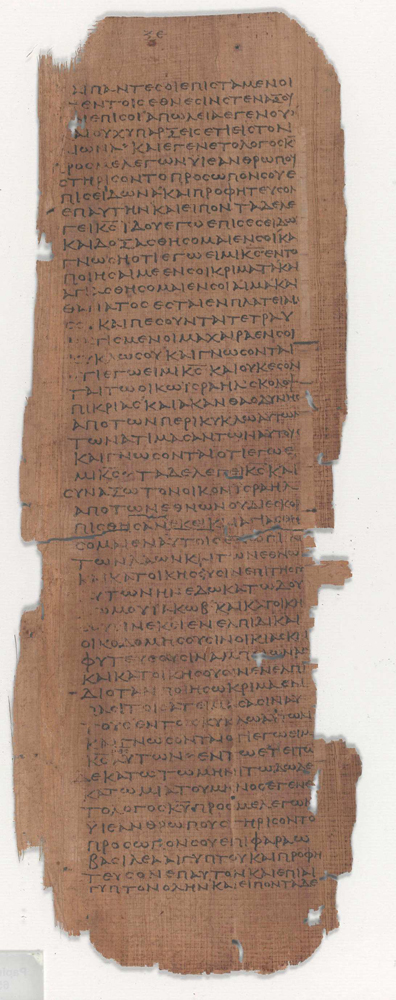 ΑΙΠΑΝΤΕϹΟΙΕΠΙϹΤΑΜΕΝΟΙ
ΕΝΤΟΙϹΕΘΝΕϹΙΝϹΤΕΝΑΞΟΥ
ΕΠΙϹΟΙΑΠΩΛΕΙΑΕΓΕΝΟΥ
ΟΥΧΥΠΑΡΞΕΙϹΕΤΙΕΙϹΤΟΝ
ΑΙΩΝΑ ΚΑΙΕΓΕΝΕΤΟΛΟΓΟϹΚΥ
ΠΡΟϹΜΕΛΕΓΩΝΥΙΕΑΝΘΡΩΠΟΥ
ϹΤΗΡΙϹΟΝΤΟΠΡΟϹΩΠΟΝϹΟΥΕ
ΠΙϹΕΙΔΩΝΑΚΑΙΠΡΟΦΗΤΕΥϹΟΝ
ΕΠΑΥΤΗΝΚΑΙΕΙΠΟΝΤΑΔΕΛΕ
ΓΕΙΚϹΙΔΟΥΕΓΩΕΠΙϹΕϹΕΙΔΩ
ΚΑΙΔΟΞΑϹΘΗϹΟΜΑΙΕΝϹΟΙΚΑ
ΓΝΩϹΗΟΤΙΕΓΩΕΙΜΙΚϹΕΝΤΩ
ΠΟΙΗϹΑΙΜΕΕΝϹΟΙΚΡΙΜΑΤΑΚΑΙ
ΑΓΙΑϹΘΗϹΟΜΑΙΕΝϹΟΙΑΙΜΑΚΑΙ
ΘΑΝΑΤΟϹΕϹΤΑΙΕΝΠΛΑΤΕΙΑΙϹ
ΚΑΙΠΕϹΟΥΝΤΑΙΤΕΤΡΑΥ
ΤΙϹΜΕΝΟΙΜΑΧΑΙΡΑΕΝϹΟΙ
ΚΥΚΛΩϹΟΥΚΑΙΓΝΩϹΟΝΤΑΙ
ΤΙΕΓΩΕΙΜΙΚϹ ΚΑΙΟΥΚΕϹΟΝ
ΤΑΙΤΩΟΙΚΩΙϹΡΑΗΛϹΚΟΛΟΨ
ΠΙΚΡΙΑϹΚΑΙΑΚΑΝΘΑΟΔΥΝΗϹ
ΑΠΟΤΩΝΠΕΡΙΚΥΚΛΩΑΥΤΩΝ
ΤΩΝΑΤΙΜΑϹΑΝΤΩΝΑΥΤΟΥϹ
ΚΑΙΓΝΩϹΟΝΤΑΙΟΤΙΕΓΩΕΙ
ΜΙΚϹ ΤΑΔΕΛΕΓΕΙΚϹΚΑΙ
ϹΥΝΑΞΩΤΟΝΟΙΚΟΝΙϹΡΑΗΛ
ΑΠΟΤΩΝΕΘΝΩΝΟΥΔΙΕϹΚΟΡ
ΠΙϹΘΗϹΑΝΕΚΕΙΚΑΙΑΓΙΑϹΘΗ
ϹΟΜΑΙΕΝΑΥΤΟΙϹΕΝΩΠΙΟΝ
ΤΩΝΛΑΩΝΚΑΙΤΩΝΕΘΝΩΝ
ΚΑΙΚΑΤΟΙΚΗϹΟΥϹΙΝΕΠΙΤΗϹΓΗϹ
ΑΥΤΩΝΗΝΕΔΩΚΑΤΩΔΟΥ
ΛΩΜΟΥΙΑΚΩΒΚΑΙΚΑΤΟΙΚΗ
ϹΟΥϹΙΝΕΚΕΙΕΝΕΛΠΙΔΙΚΑΙ
ΟΙΚΟΔΟΜΗϹΟΥϹΙΝΟΙΚΙΑϹΚΑΙ
ΦΥΤΕΥϹΟΥϹΙΝΑΜΠΕΛΩΝΑϹ
ΚΑΙΚΑΤΟΙΚΗϹΟΥϹΙΝΕΝΕΛΠΙ
ΔΙΟΤΑΝΠΟΙΗϹΩΚΡΙΜΑΕΝ
ΠΑϹΙΤΟΙϹΑΤΕΙΜΑϹΑϹΙΝΑΥ
ΤΟΥϹΕΝΤΟΙϹΚΥΚΛΩΑΥΤΩΝ
ΚΑΙΓΝΩϹΟΝΤΑΙΟΤΙΕΓΩΕΙΜΙ
ΚϹ ΑΥΤΩΝ ΕΝΤΩΕΤΕΙΤΩ
ΔΕΚΑΤΩΤΩΜΗΝΙΤΩΔΩΔΕ
ΚΑΤΩΜΙΑΤΟΥΜΗΝΟϹΕΓΕΝΕ
ΤΟΛΟΓΟϹΚΥΠΡΟϹΜΕΛΕΓΩΝ
ΥΙΕΑΝΘΡΩΠΟΥϹΤΗΡΙϹΟΝΤΟ
ΠΡΟϹΩΠΟΝϹΟΥΕΠΙΦΑΡΑΩ
ΒΑϹΙΛΕΑΑΙΓΥΠΤΟΥΚΑΙΠΡΟΦΗ
ΤΕΥϹΟΝΕΠΑΥΤΟΝΚΑΙΕΠΑΙ
ΓΥΠΤΟΝΟΛΗΝΚΑΙΕΙΠΟΝΤΑΔΕ